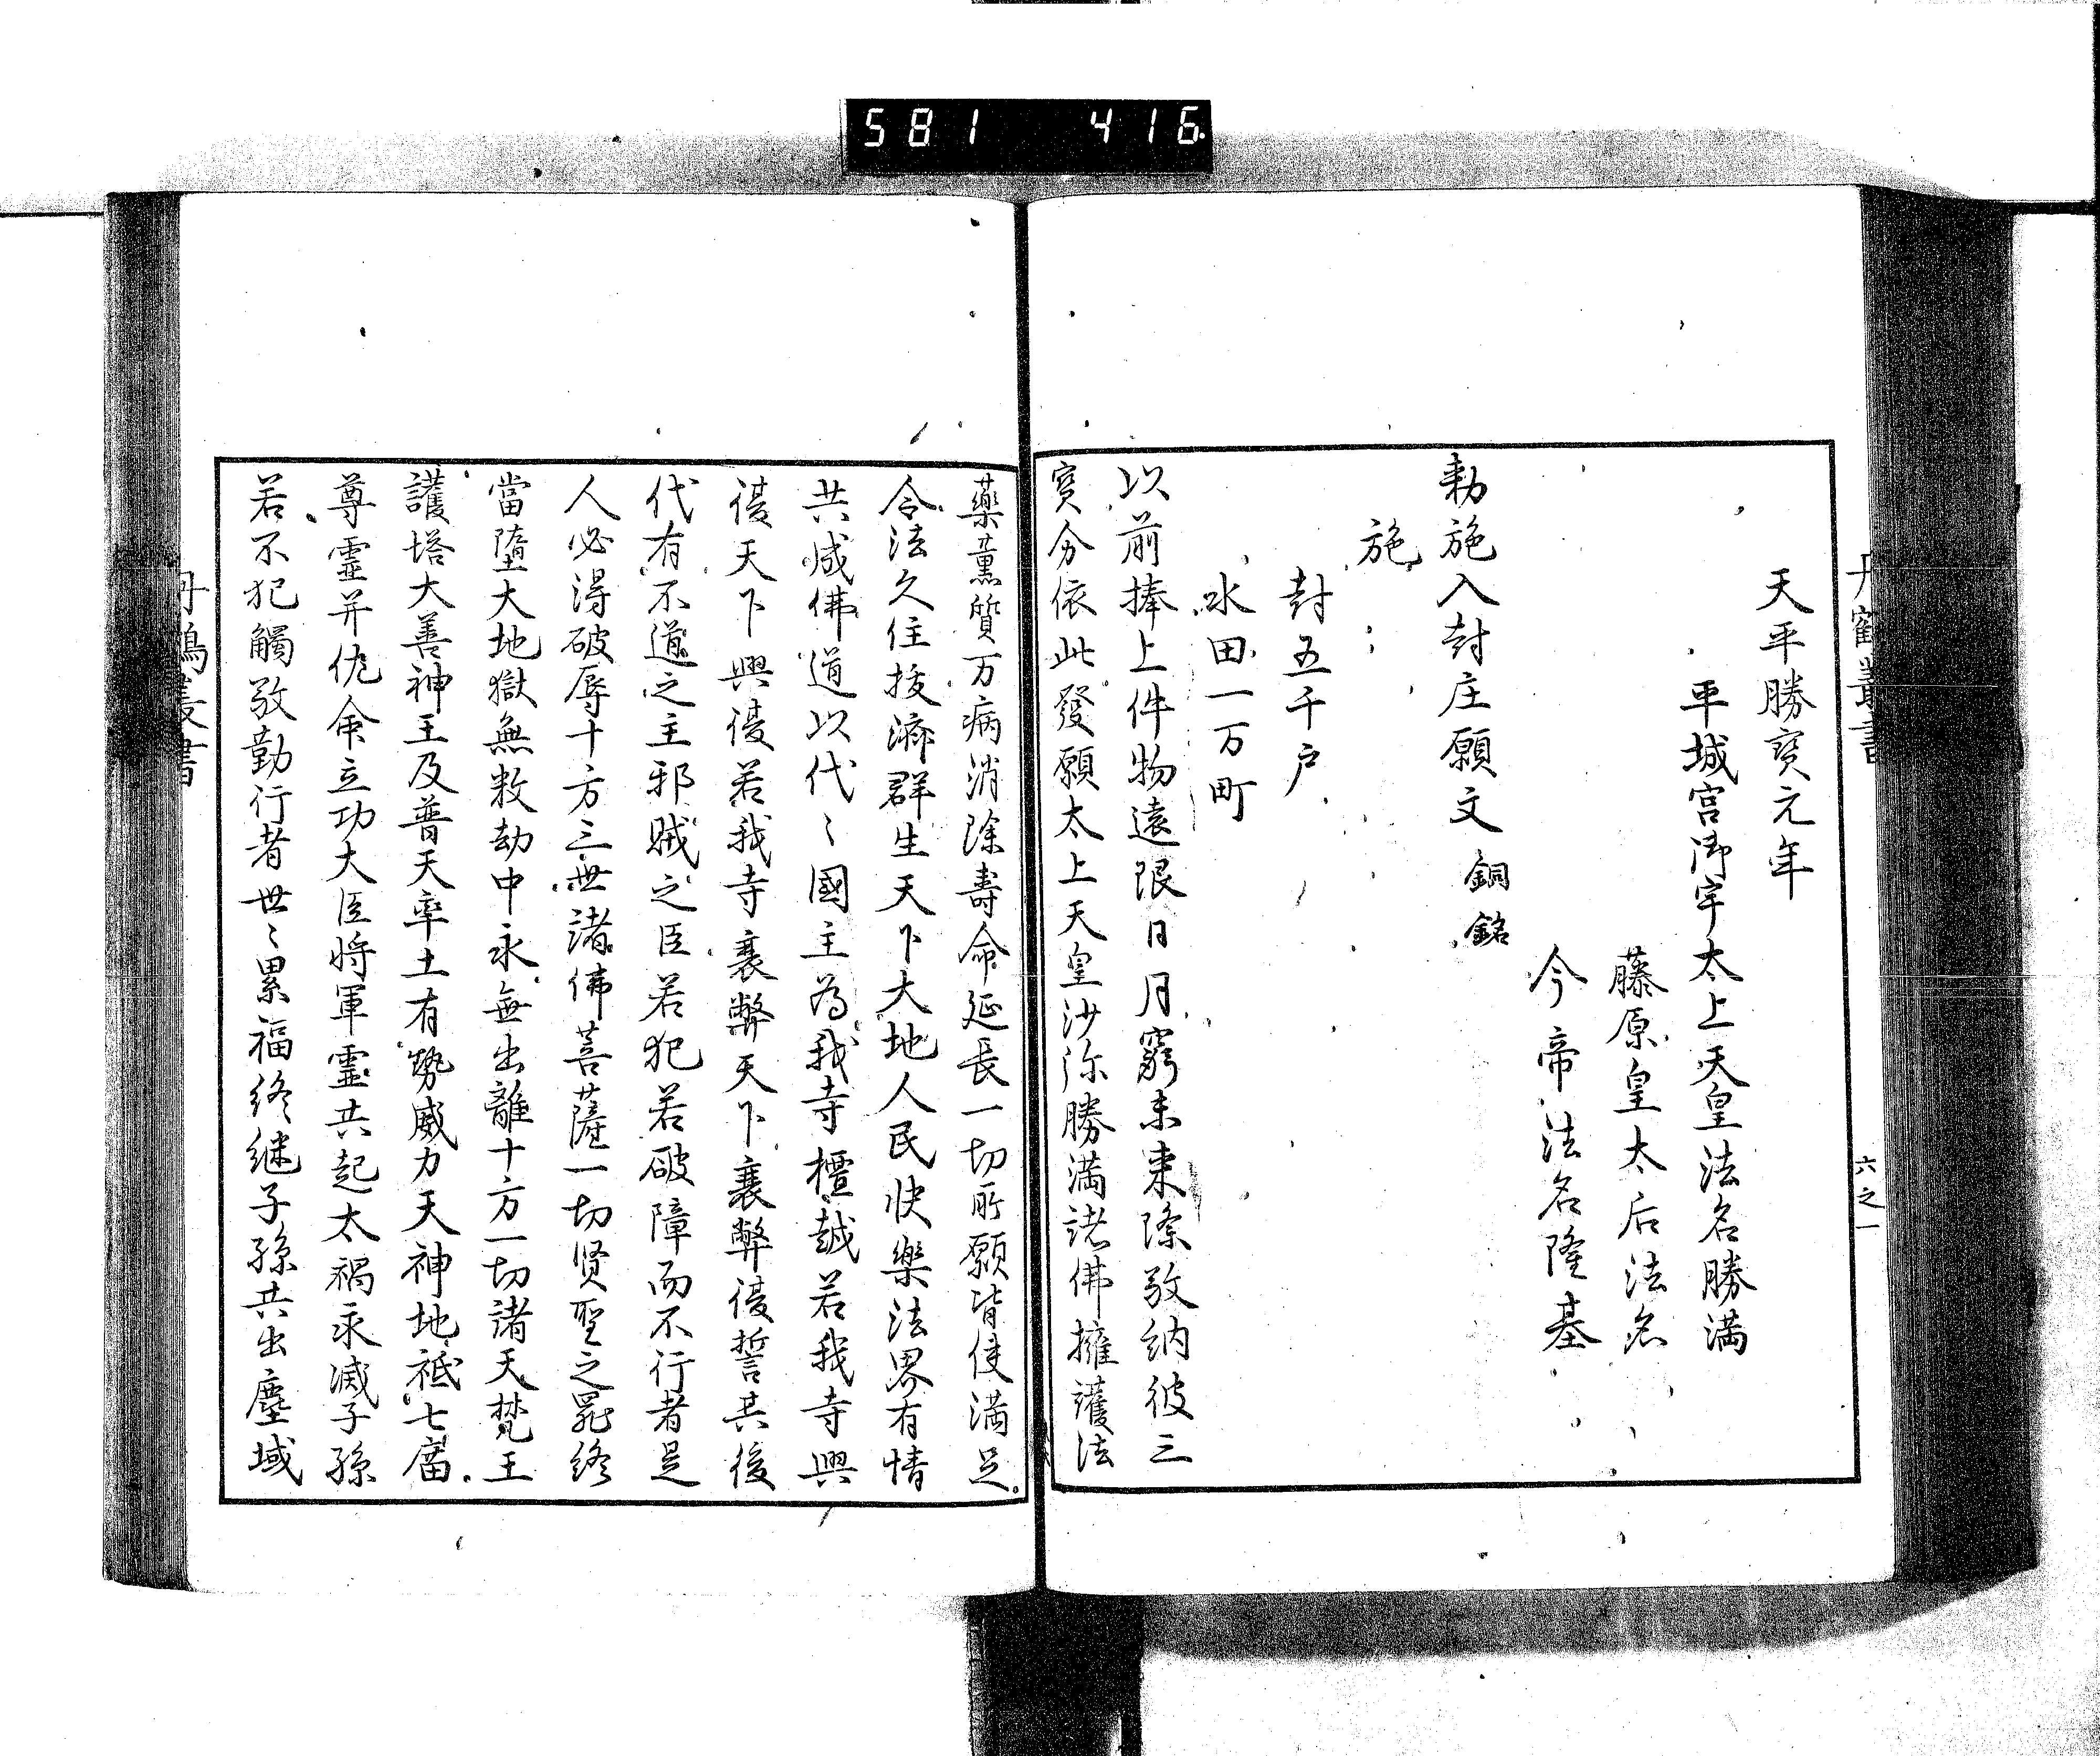 581 416
丹鶴叢書
六之一
天平勝寳元年
平城宮御宇太上天皇法名勝満
藤原皇太后法名
今帝法名隆基
勅施入封庄願文 銅銘
施
封五千戸
水田一万町
以前捧上件物遠限日月窮未来際敬納彼三
寳分依此發願太上天皇沙弥勝満諸佛擁護法
藥薫質万病消除壽命延長一切所願皆使満足
令法久住抜濟群生天下大地人民快樂法界有情
共成佛道以代〻國主為我寺檀越若我寺興
復天下興復若我寺衰弊天下衰弊復誓其後
代有不道之主邪賊之臣若犯若破障而不行者是
人必得破辱十方三世諸佛菩薩一切賢聖之罪終
當墮大地獄無数劫中永無出離十方一切諸天梵王
護塔大善神王及普天率土有勢威力天神地祇七廟
尊霊并佐命立功大臣将軍霊共起太禍永滅子孫
若不犯觸敬勤行者世〻累福終継子孫共出塵域
丹鶴叢書